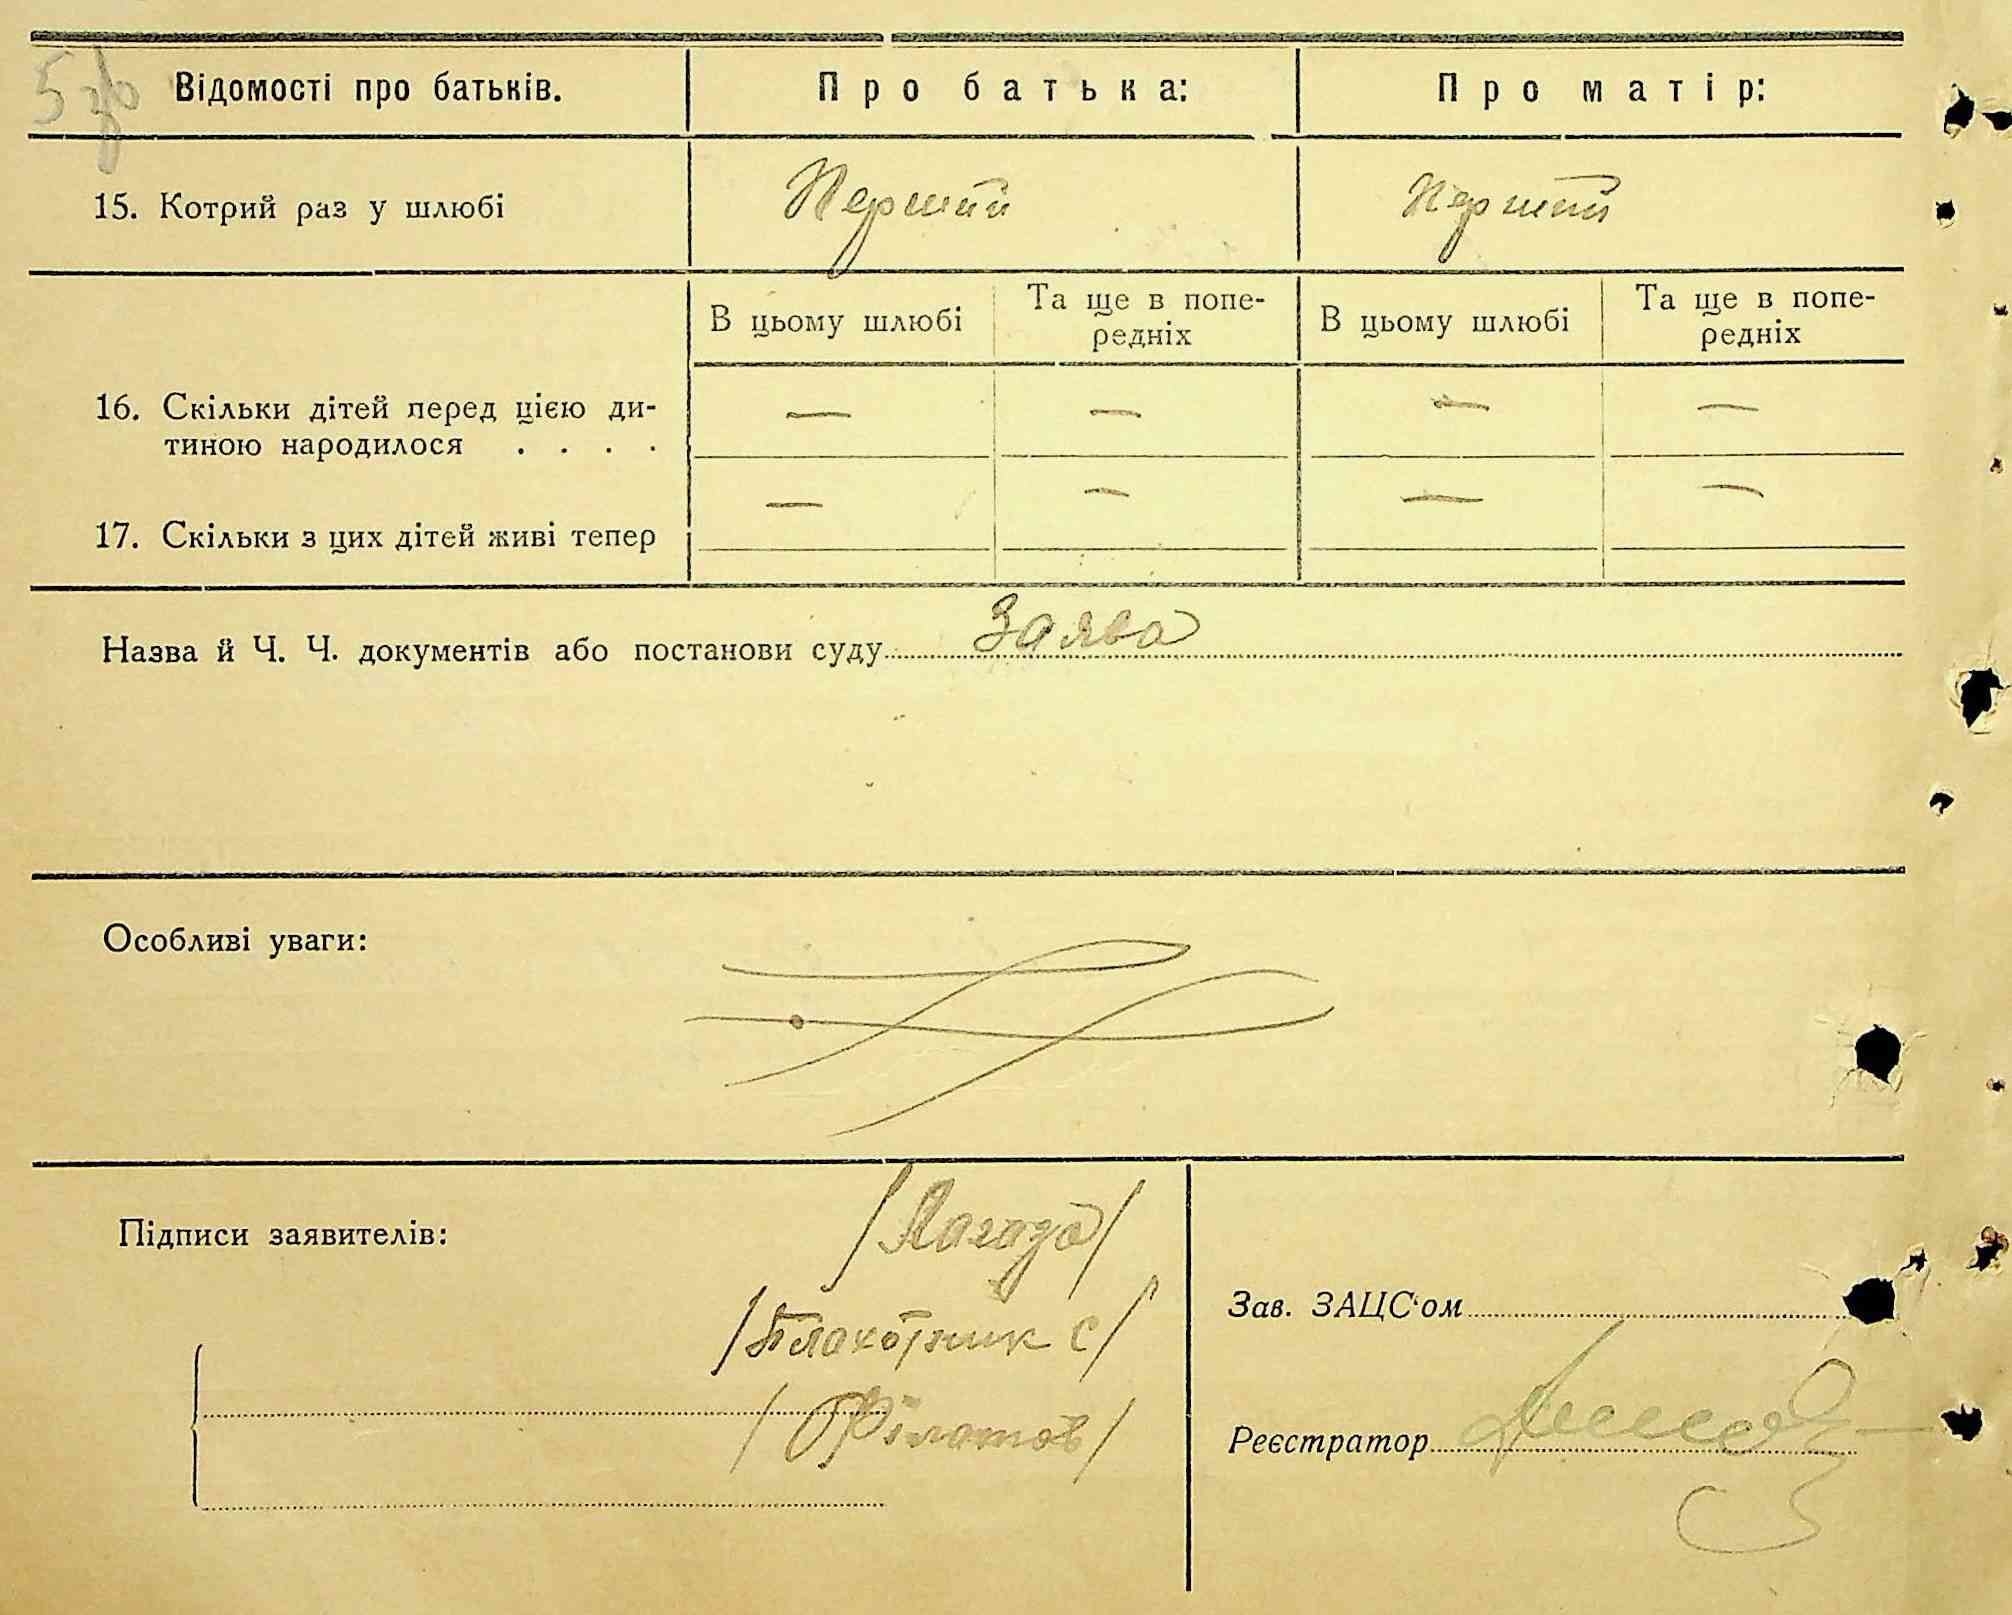 Відомості про батьків. Про батька: Про матір:
15. Котрий раз у шлюбі Перший Перший
В цьому шлюбі Та ще в попе- В цьому шлюбі Та ще в попе-
редніх редніх
16. Скільки дітей перед цією ди- — — — —
тиною народилося . . . .
17. Скільки з цих дітей живі тепер — — — —
Назва й Ч. Ч. документів або постанови суду Заява
Особливі уваги:
Підписи заявителів: /Лагода/
/Плахотник С/
/Філатов/
Зав. ЗАЦС'ом
Реєстратор